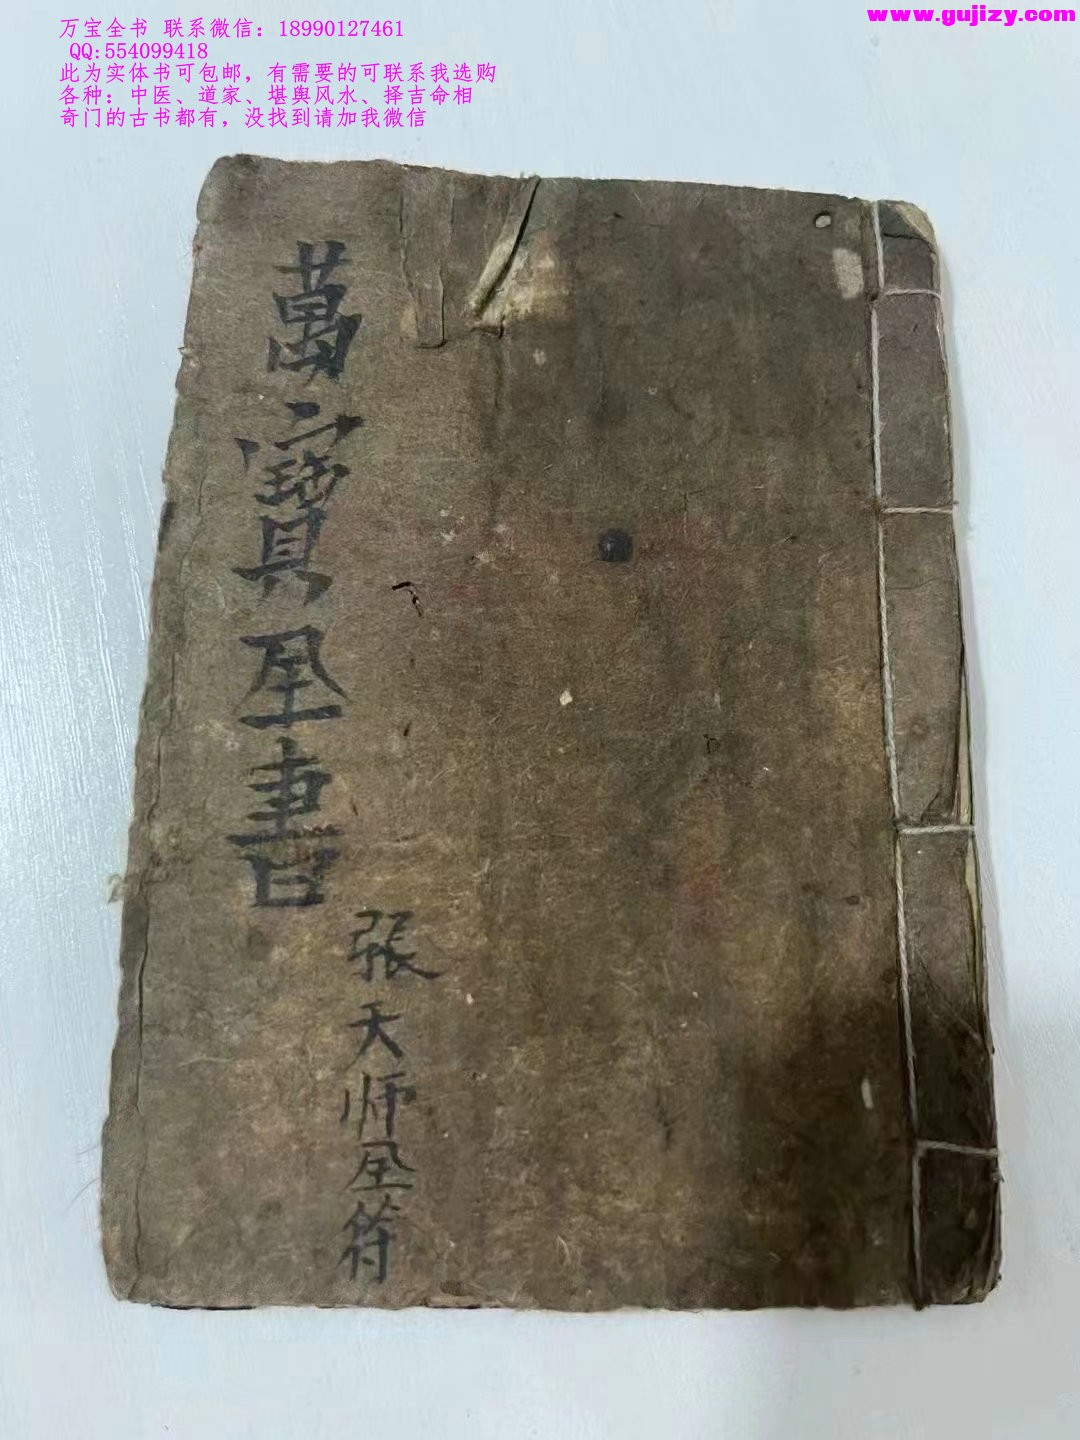 万宝全书 联系微信：18990127461
QQ:554099418
此为实体书可包邮，有需要的可联系我选购
各种：中医、道家、堪舆风水、择吉命相
奇门的古书都有，没找到请加我微信
www.gujizy.com
萬寶全書
張天师全符